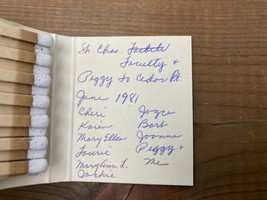 St. Chas.
Faculty &
Peggy to Cedar Pt.
June 1981
Cheri Joyce
Karen Barb
Mary Ellen Joanne
Laurie Peggy &
Maryann L. Me
Darhie